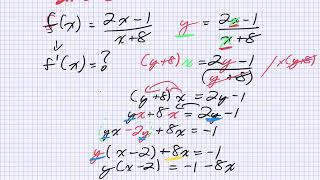 f(x) = 2x-1/x+8    y = 2x-1/x+8
↓
f'(x) = ?    (y+8)x = 2y-1/(y+8)    /×(y+8)
(y+8)x = 2y-1
yx+8x = 2y-1
yx-2y+8x = -1
y(x-2)+8x = -1
y(x-2) = -1-8x